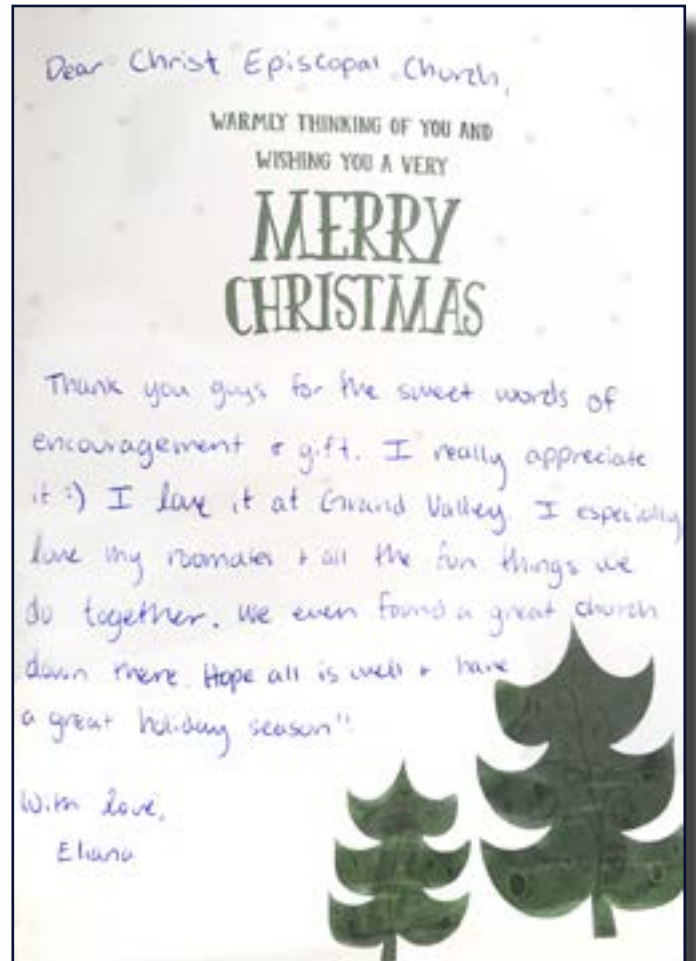 Dear Christ Episcopal Church,
WARMLY THINKING OF YOU AND
WISHING YOU A VERY
MERRY
CHRISTMAS
Thank you guys for the sweet words of
encouragement + gift. I really appreciate
it :) I love it at Grand Valley. I especially
love my roomates + all the fun things we
do together. We even found a great church
down there. Hope all is well + have
a great holiday season!!
With love,
Eliana